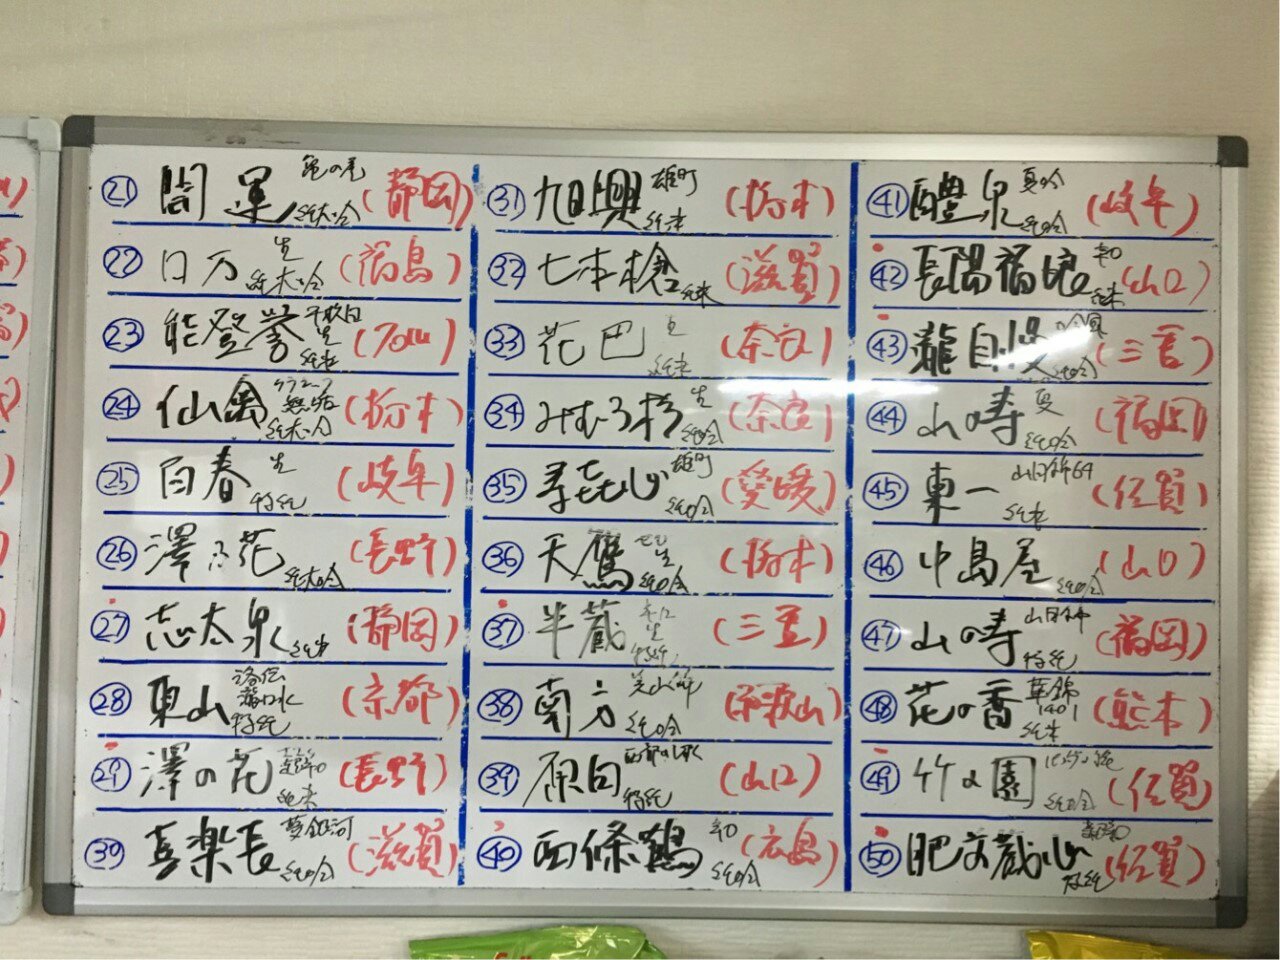 ㉑ 開運 亀の尾 純大吟 (静岡)
㉒ 口万 生 純大吟 (福島)
㉓ 能登誉 千枚田 生 純米 (石川)
㉔ 仙禽 無垢 純大吟 (栃木)
㉕ 百春 生 特純 (岐阜)
㉖ 澤乃花 純大吟 (長野)
㉗ 志太泉 純米 (静岡)
㉘ 東山 特純 (京都)
㉙ 澤の花 純米 (長野)
㉚ 喜楽長 純吟 (滋賀)
㉛ 旭興 雄町 純米 (栃木)
㉜ 七本槍 純米 (滋賀)
㉝ 花巴 純米 (奈良)
㉞ みむろ杉 生 純吟 (奈良)
㉟ 寿喜心 雄町 純吟 (愛媛)
㊱ 天鷹 生 純吟 (栃木)
㊲ 半蔵 生 特純 (三重)
㊳ 南方 美山錦 純吟 (和歌山)
㊴ 原田 西都の雫 特純 (山口)
㊵ 西條鶴 辛口 純吟 (広島)
㊶ 醴泉 夏吟 純吟 (岐阜)
㊷ 長陽福娘 辛口 純米 (山口)
㊸ 瀧自慢 純吟 (三重)
㊹ 山の寿 夏 純吟 (福岡)
㊺ 東一 山田錦64 純米 (佐賀)
㊻ 中島屋 純吟 (山口)
㊼ 山の寿 山田錦 特純 (福岡)
㊽ 花の香 華錦 1401 純米 (熊本)
㊾ 竹の園 純吟 (佐賀)
㊿ 肥前蔵心 特純 (佐賀)